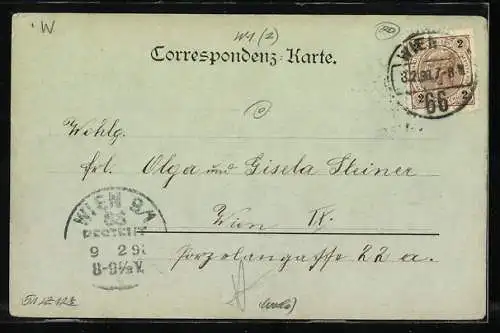 W
W1.(2)
Correspondenz-Karte.
WIEN
66
2
2 2
Wohlg.
Frl. Olga und Gisela Steiner
Wien IX.
Porzelangasse 22 a.
WIEN 9/1
BESTELLT
9 2 9
8-9½V.